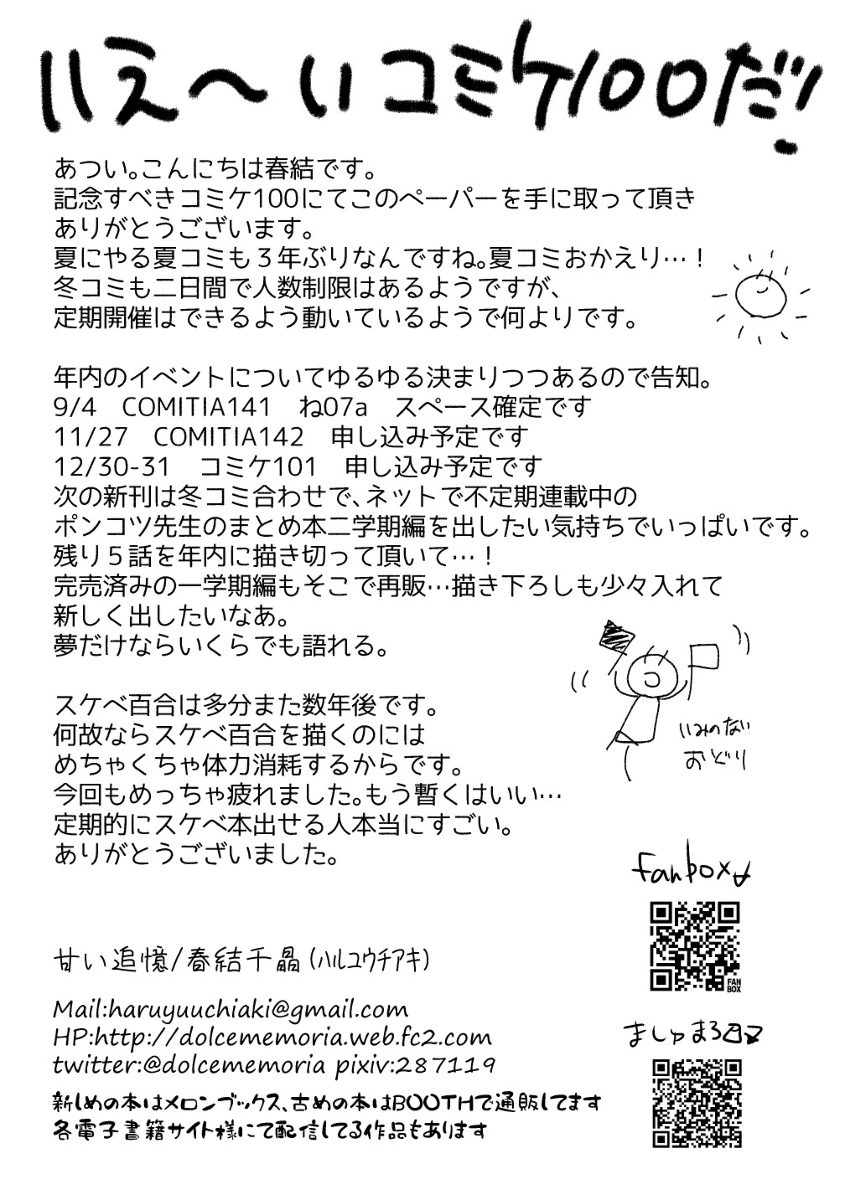 いえ～いコミケ100だ!
あつい。こんにちは春結です。
記念すべきコミケ100にてこのペーパーを手に取って頂き
ありがとうございます。
夏にやる夏コミも３年ぶりなんですね。夏コミおかえり…！
冬コミも二日間で人数制限はあるようですが、
定期開催はできるよう動いているようで何よりです。
年内のイベントについてゆるゆる決まりつつあるので告知。
9/4　COMITIA141　ね07a　スペース確定です
11/27　COMITIA142　申し込み予定です
12/30-31　コミケ101　申し込み予定です
次の新刊は冬コミ合わせで、ネットで不定期連載中の
ポンコツ先生のまとめ本二学期編を出したい気持ちでいっぱいです。
残り５話を年内に描き切って頂いて…！
完売済みの一学期編もそこで再販…描き下ろしも少々入れて
新しく出したいなあ。
夢だけならいくらでも語れる。
いみのない
おどり
スケベ百合は多分また数年後です。
何故ならスケベ百合を描くのには
めちゃくちゃ体力消耗するからです。
今回もめっちゃ疲れました。もう暫くはいい…
定期的にスケベ本出せる人本当にすごい。
ありがとうございました。
fanbox
FAN
BOX
甘い追憶/春結千晶（ハルユウチアキ）
Mail:haruyuuchiaki@gmail.com
HP:http://dolcememoria.web.fc2.com
twitter:@dolcememoria pixiv:287119
ましゅまろ
新しめの本はメロンブックス、古めの本はBOOTHで通販してます
各電子書籍サイト様にて配信してる作品もあります